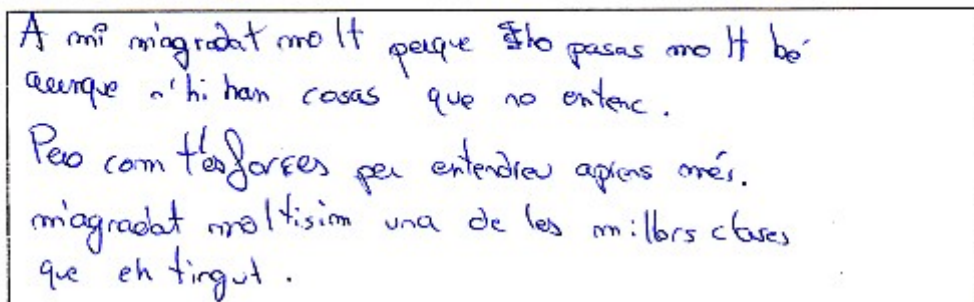 A mi m'agradat molt perque t'ho pasas molt bé
aunrque n'hi han cosas que no entenc.
Pero com t'esforces per entendreu aprens més.
m'agradat moltisim una de les millors clases
que eh tingut.